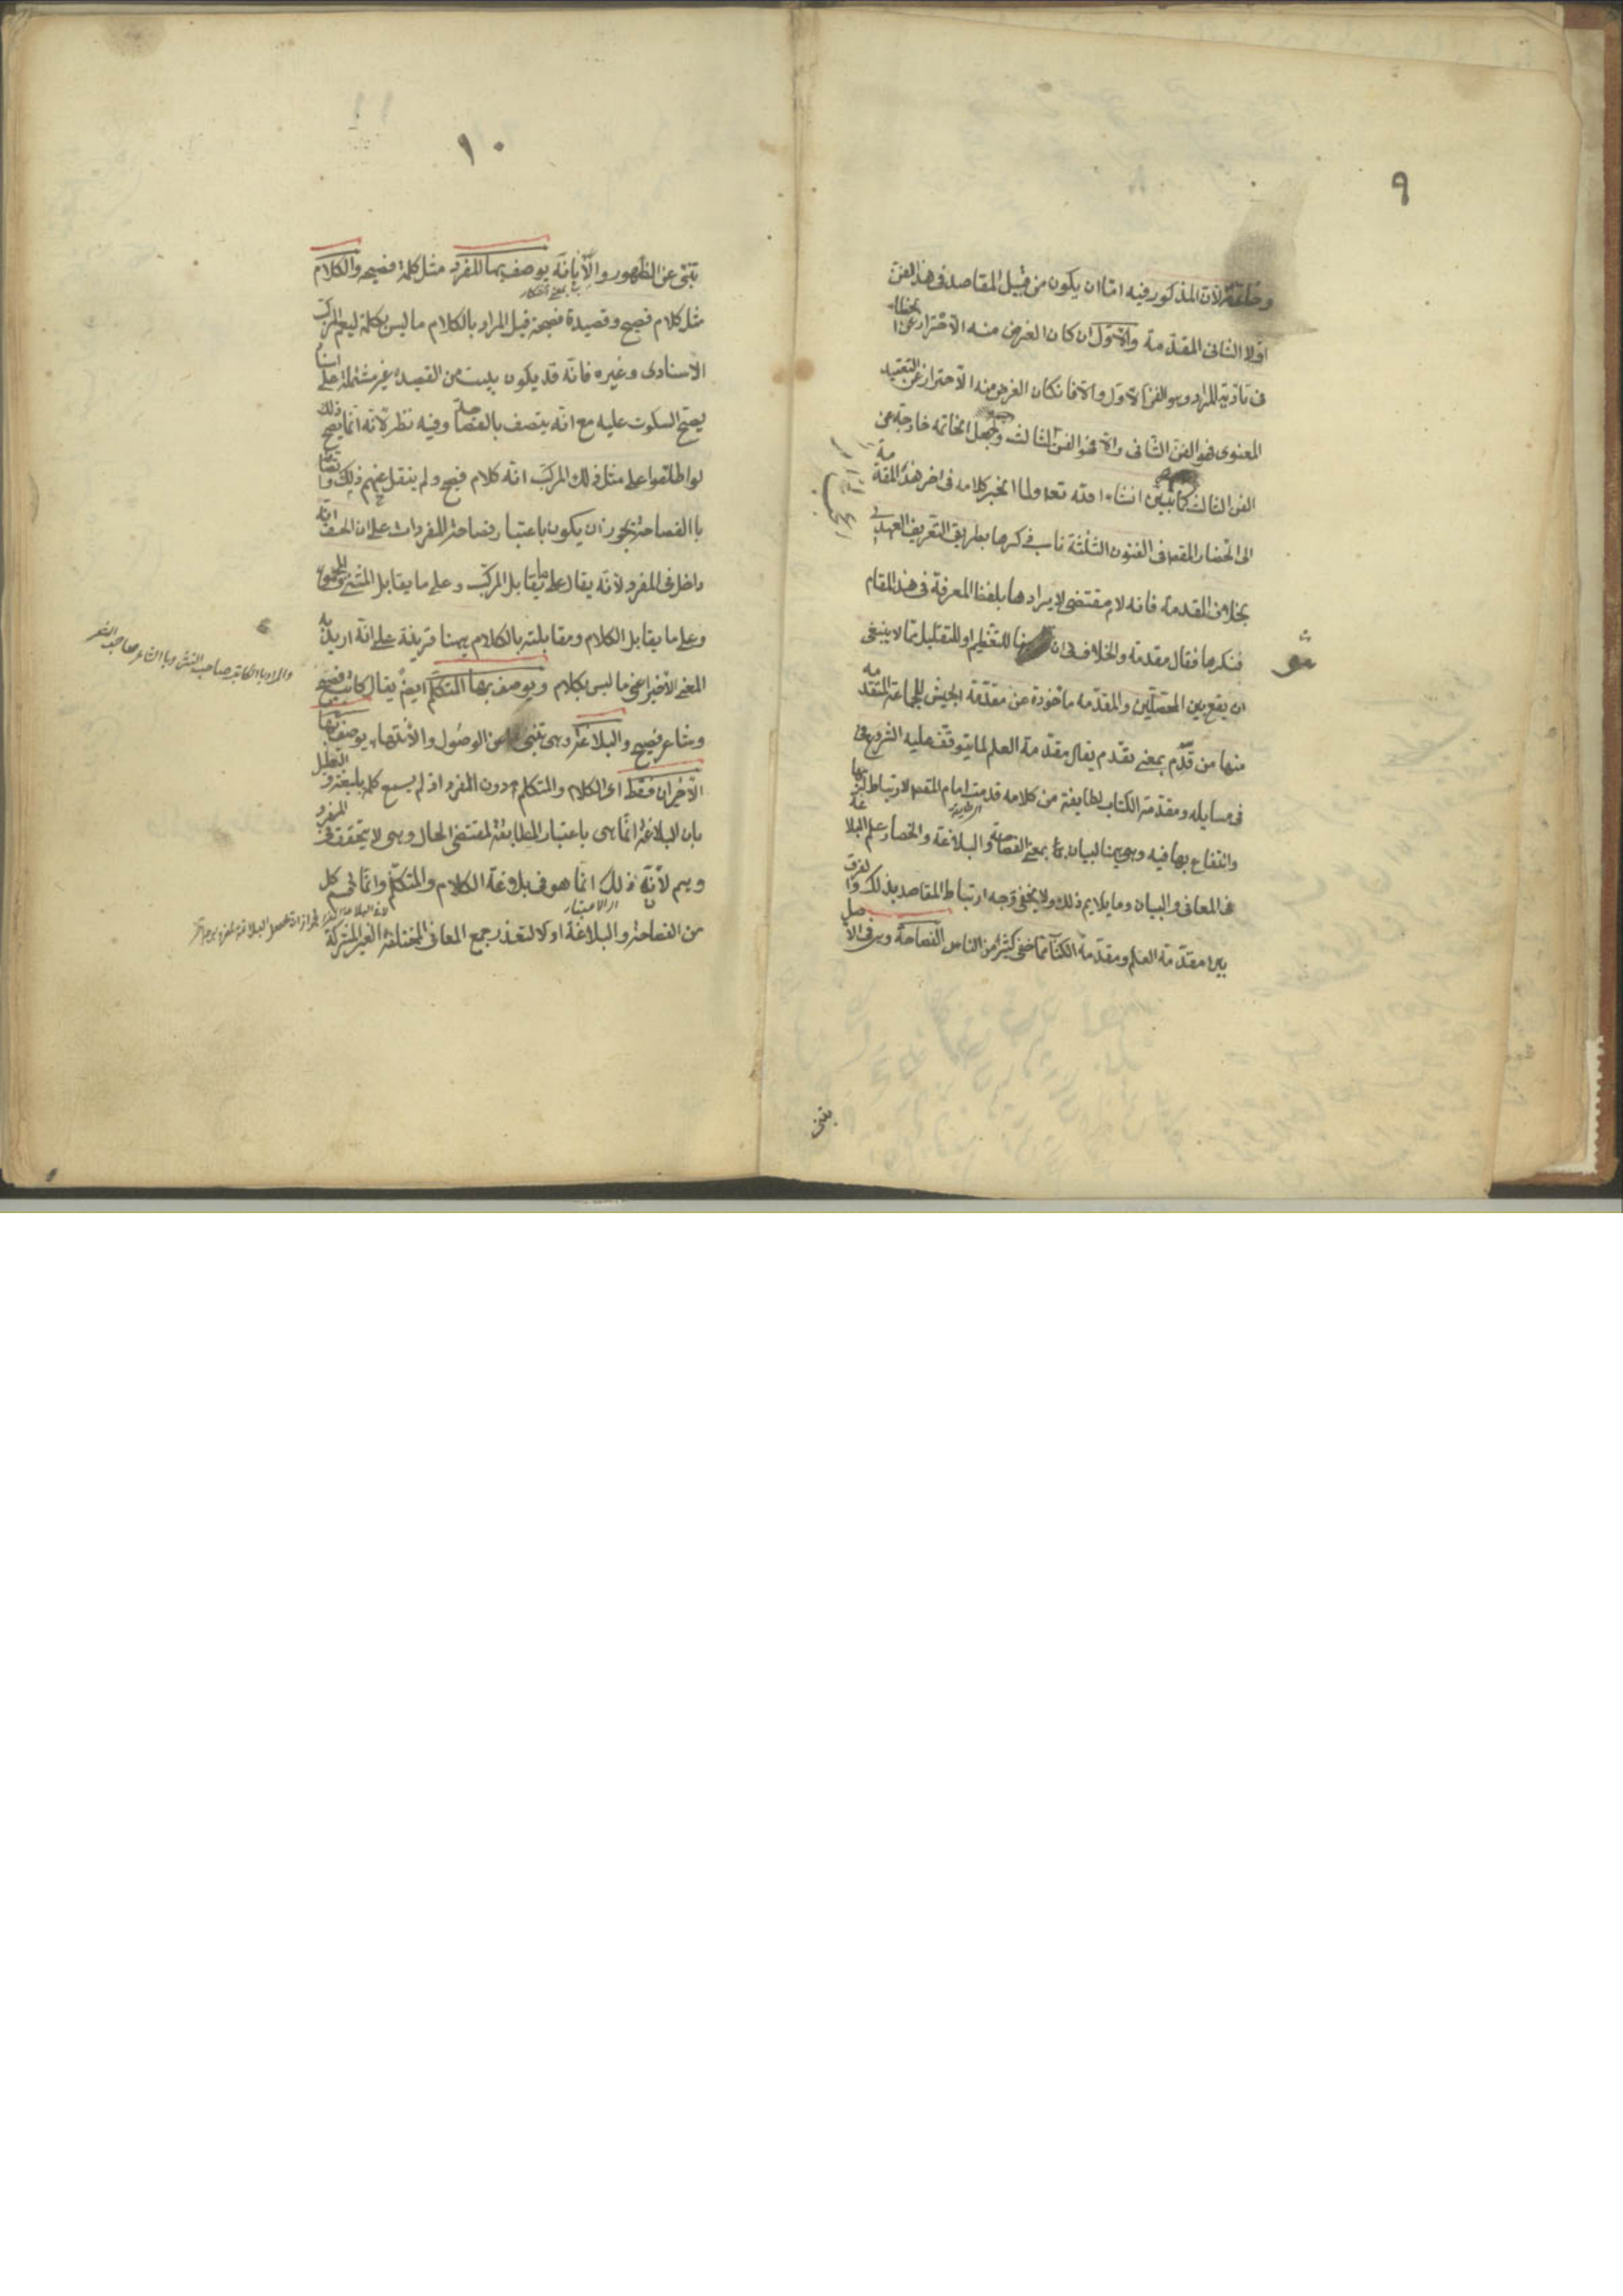 ٩
وخاتمة لان المذكور فيه اما ان يكون من قبيل المقاصد فى هذا الفن
اولا الثانى المقدمة والاول ان كان الغرض منه الاحتراز عن الخطاء
فى تادية المراد وهو الفن الاول والا فان كان الغرض منه الاحتراز عن التعقيد
المعنوى فهو الفن الثانى والا فهو الفن الثالث وجعل الخاتمة خارجة عن
الفن الثالث كما نبين انشاء الله تعه ولما انجر كلامه فى اخر هذه المقدمة
الى انحصار المقصد فى الفنون الثلثة ناسب ذكرها بطريق التعريف العهدى
بخلاف المقدمة فانه لا مقتضى لايرادها بلفظ المعرفة فى هذا المقام
فنكرها فقال مقدمة والخلاف فى ان للتعظيم او للتقليل مما لا ينبغى
شو
ان يقع بين المحصلين والمقدمة ماخوذة من مقدمة الجيش للجماعة المتقدمه
منها من قدم بمعنى تقدم يقال مقدمة العلم لما يتوقف عليه الشروع فى
فى مسايله ومقدمة الكتاب لطايفة من كلامه قدمت امام المقصد لارتباط له بها
وانتفاع بها فيه وهى هنا لبيان معنى الفصاحة والبلاغة وانحصار علم البلاغة
فى المعانى والبيان وما يلايم ذلك ولا يخفى وجه ارتباط المقاصد بذلك والفرق
بين مقدمة العلم ومقدمة الكتاب مما خفى كثيرا من الناس الفصاحة وهى فى الاصل
تنبى
١٠
تنبى عن الظهور والابانة يوصف بها المفرد مثل كلمة فصيحه والكلام
مثل كلام فصيح وقصيدة فصيحة قيل المراد بالكلام ما ليس بكلمة ليعم المركب
الاسنادى وغيره فانه قد يكون بيت من القصيدة غير مشتملة على اسناد
يصح السكوت عليه مع انه يتصف بالفصاحة وفيه نظر لانه انما يصح ذلك
لو اطلقوا على مثل ذلك المركب انه كلام فصيح ولم ينقل عنهم ذلك واتصافه
بالفصاحة يجوز ان يكون باعتبار فصاحة المفردات على ان الحق انه
داخل فى المفرد لانه يقال على ما يقابل المركب وعلى ما يقابل المثنى والمجموع
وعلى ما يقابل الكلام ومقابلته بالكلام ههنا قرينة على انه اريد به
المعنى الاخير اعنى ما ليس بكلام ويوصف بها المتكلم ايضا يقال كاتب فصيح
والمراد بالكاتب صاحب النثر وبالشاعر صاحب الشعر
وشاعر فصيح والبلاغة وهى تنبى عن الوصول والانتهاء يوصف بها
الاخيران فقط اى الكلام والمتكلم دون المفرد اذ لم يسمع كلمة بليغة والتعليل
بان البلاغة انما هى باعتبار المطابقة لمقتضى الحال وهى لا تتحقق فى المفرد
وهم لانه ذلك انما هو فى بلاغة الكلام والمتكلم وانما قسم كل
من الفصاحة والبلاغة اولا لتعذر جمع المعانى المختلفة الغير المشتركة